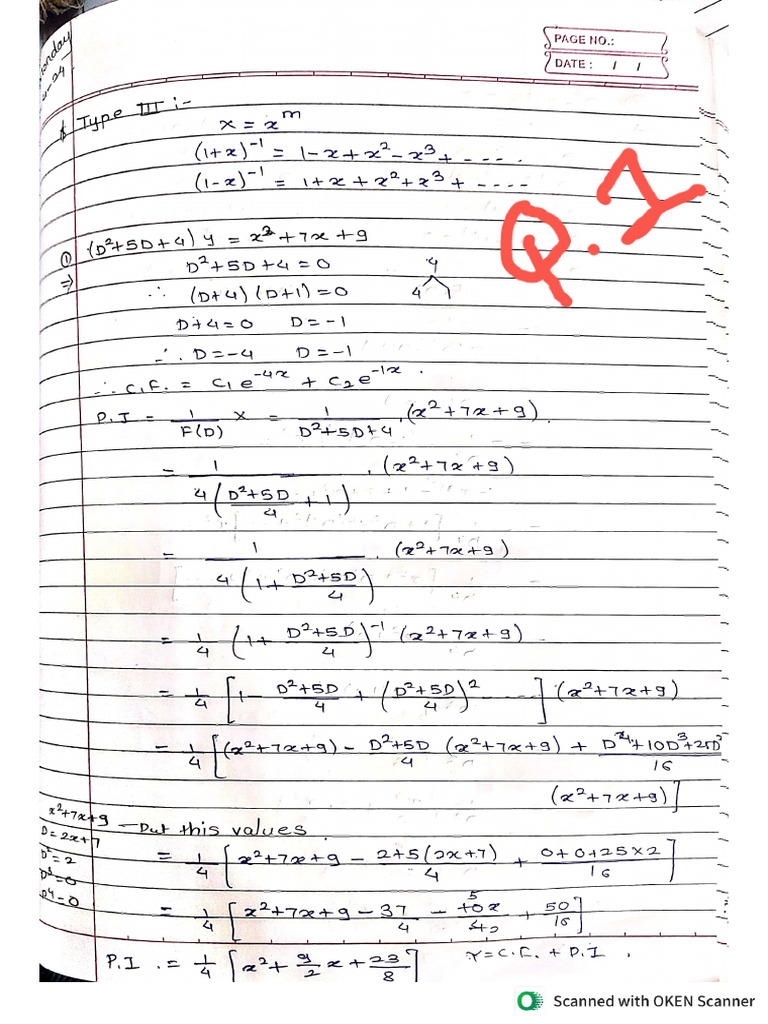 PAGE NO.:
DATE : / /
Type III :-
x = x^m
(1+x)^-1 = 1 - x + x^2 - x^3 + ----.
(1-x)^-1 = 1 + x + x^2 + x^3 + ----
Q.1
① (D^2+5D+4) y = x^2 + 7x + 9
⇒ D^2+5D+4 = 0
4
∴ (D+4) (D+1) = 0
4 1
D+4=0 D=-1
∴ D=-4 D=-1
∴ C.F. = C1 e^-4x + C2 e^-1x .
P.I = 1/F(D) X = 1/(D^2+5D+4) . (x^2+7x+9)
= 1/(4((D^2+5D)/4 + 1)) . (x^2+7x+9)
= 1/(4(1 + (D^2+5D)/4)) . (x^2+7x+9)
= 1/4 (1 + (D^2+5D)/4)^-1 (x^2+7x+9)
= 1/4 [1 - (D^2+5D)/4 + ((D^2+5D)/4)^2 -----] (x^2+7x+9)
= 1/4 [(x^2+7x+9) - (D^2+5D)/4 (x^2+7x+9) + (D^4+10D^3+25D^2)/16
(x^2+7x+9)]
x^2+7x+9
D=2x+7
D^2=2
D^3=0
D^4=0
- Put this values
= 1/4 [x^2+7x+9 - (2+5(2x+7))/4 + (0+0+25×2)/16]
= 1/4 [x^2+7x+9 - 37/4 - 5 10x/4 2 + 50/16]
P.I . = 1/4 [x^2 + 9/2 x + 23/8]
Y = C.F. + P.I .
Scanned with OKEN Scanner